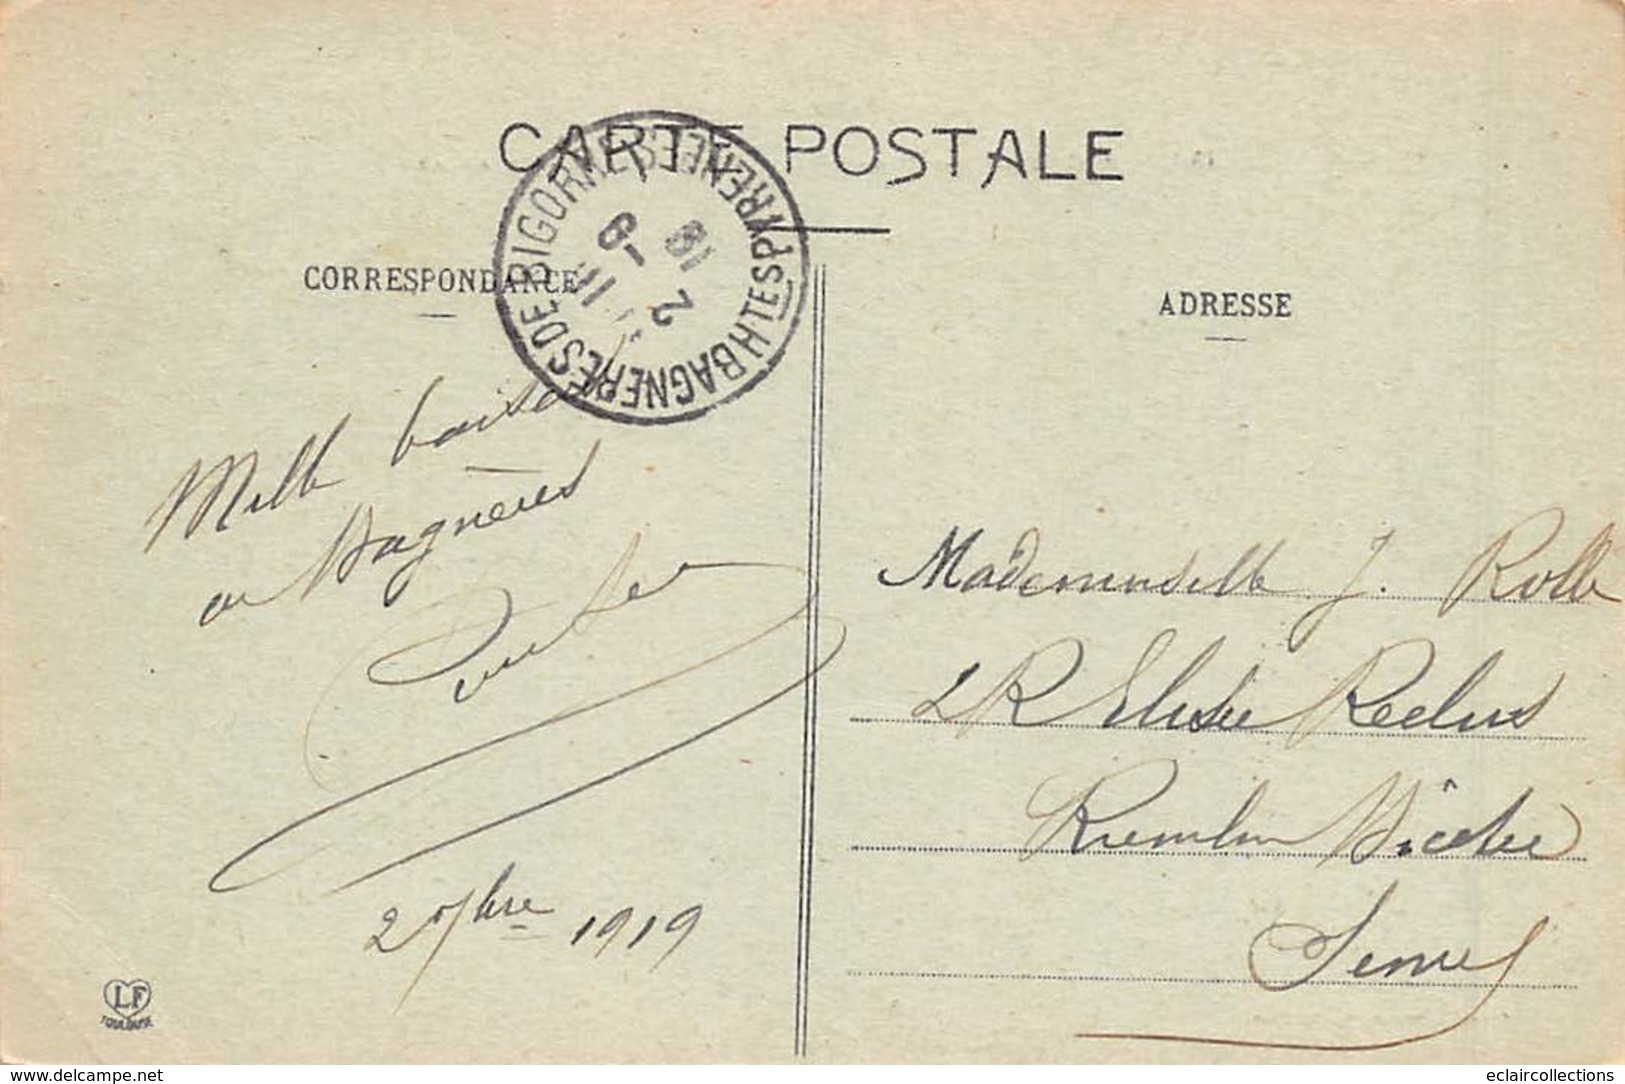 CARTE POSTALE
BAGNERES DE BIGORRE HTES PYRENEES
18
2 -9
CORRESPONDANCE
ADRESSE
Mille baisers
de Bagnères
2 7bre 1919
Mademoiselle J. Rolle
2 R Elisée Reclus
Kremlin Bicêtre
Seine
LF
TOULOUSE
www.delcampe.net
eclaircollections